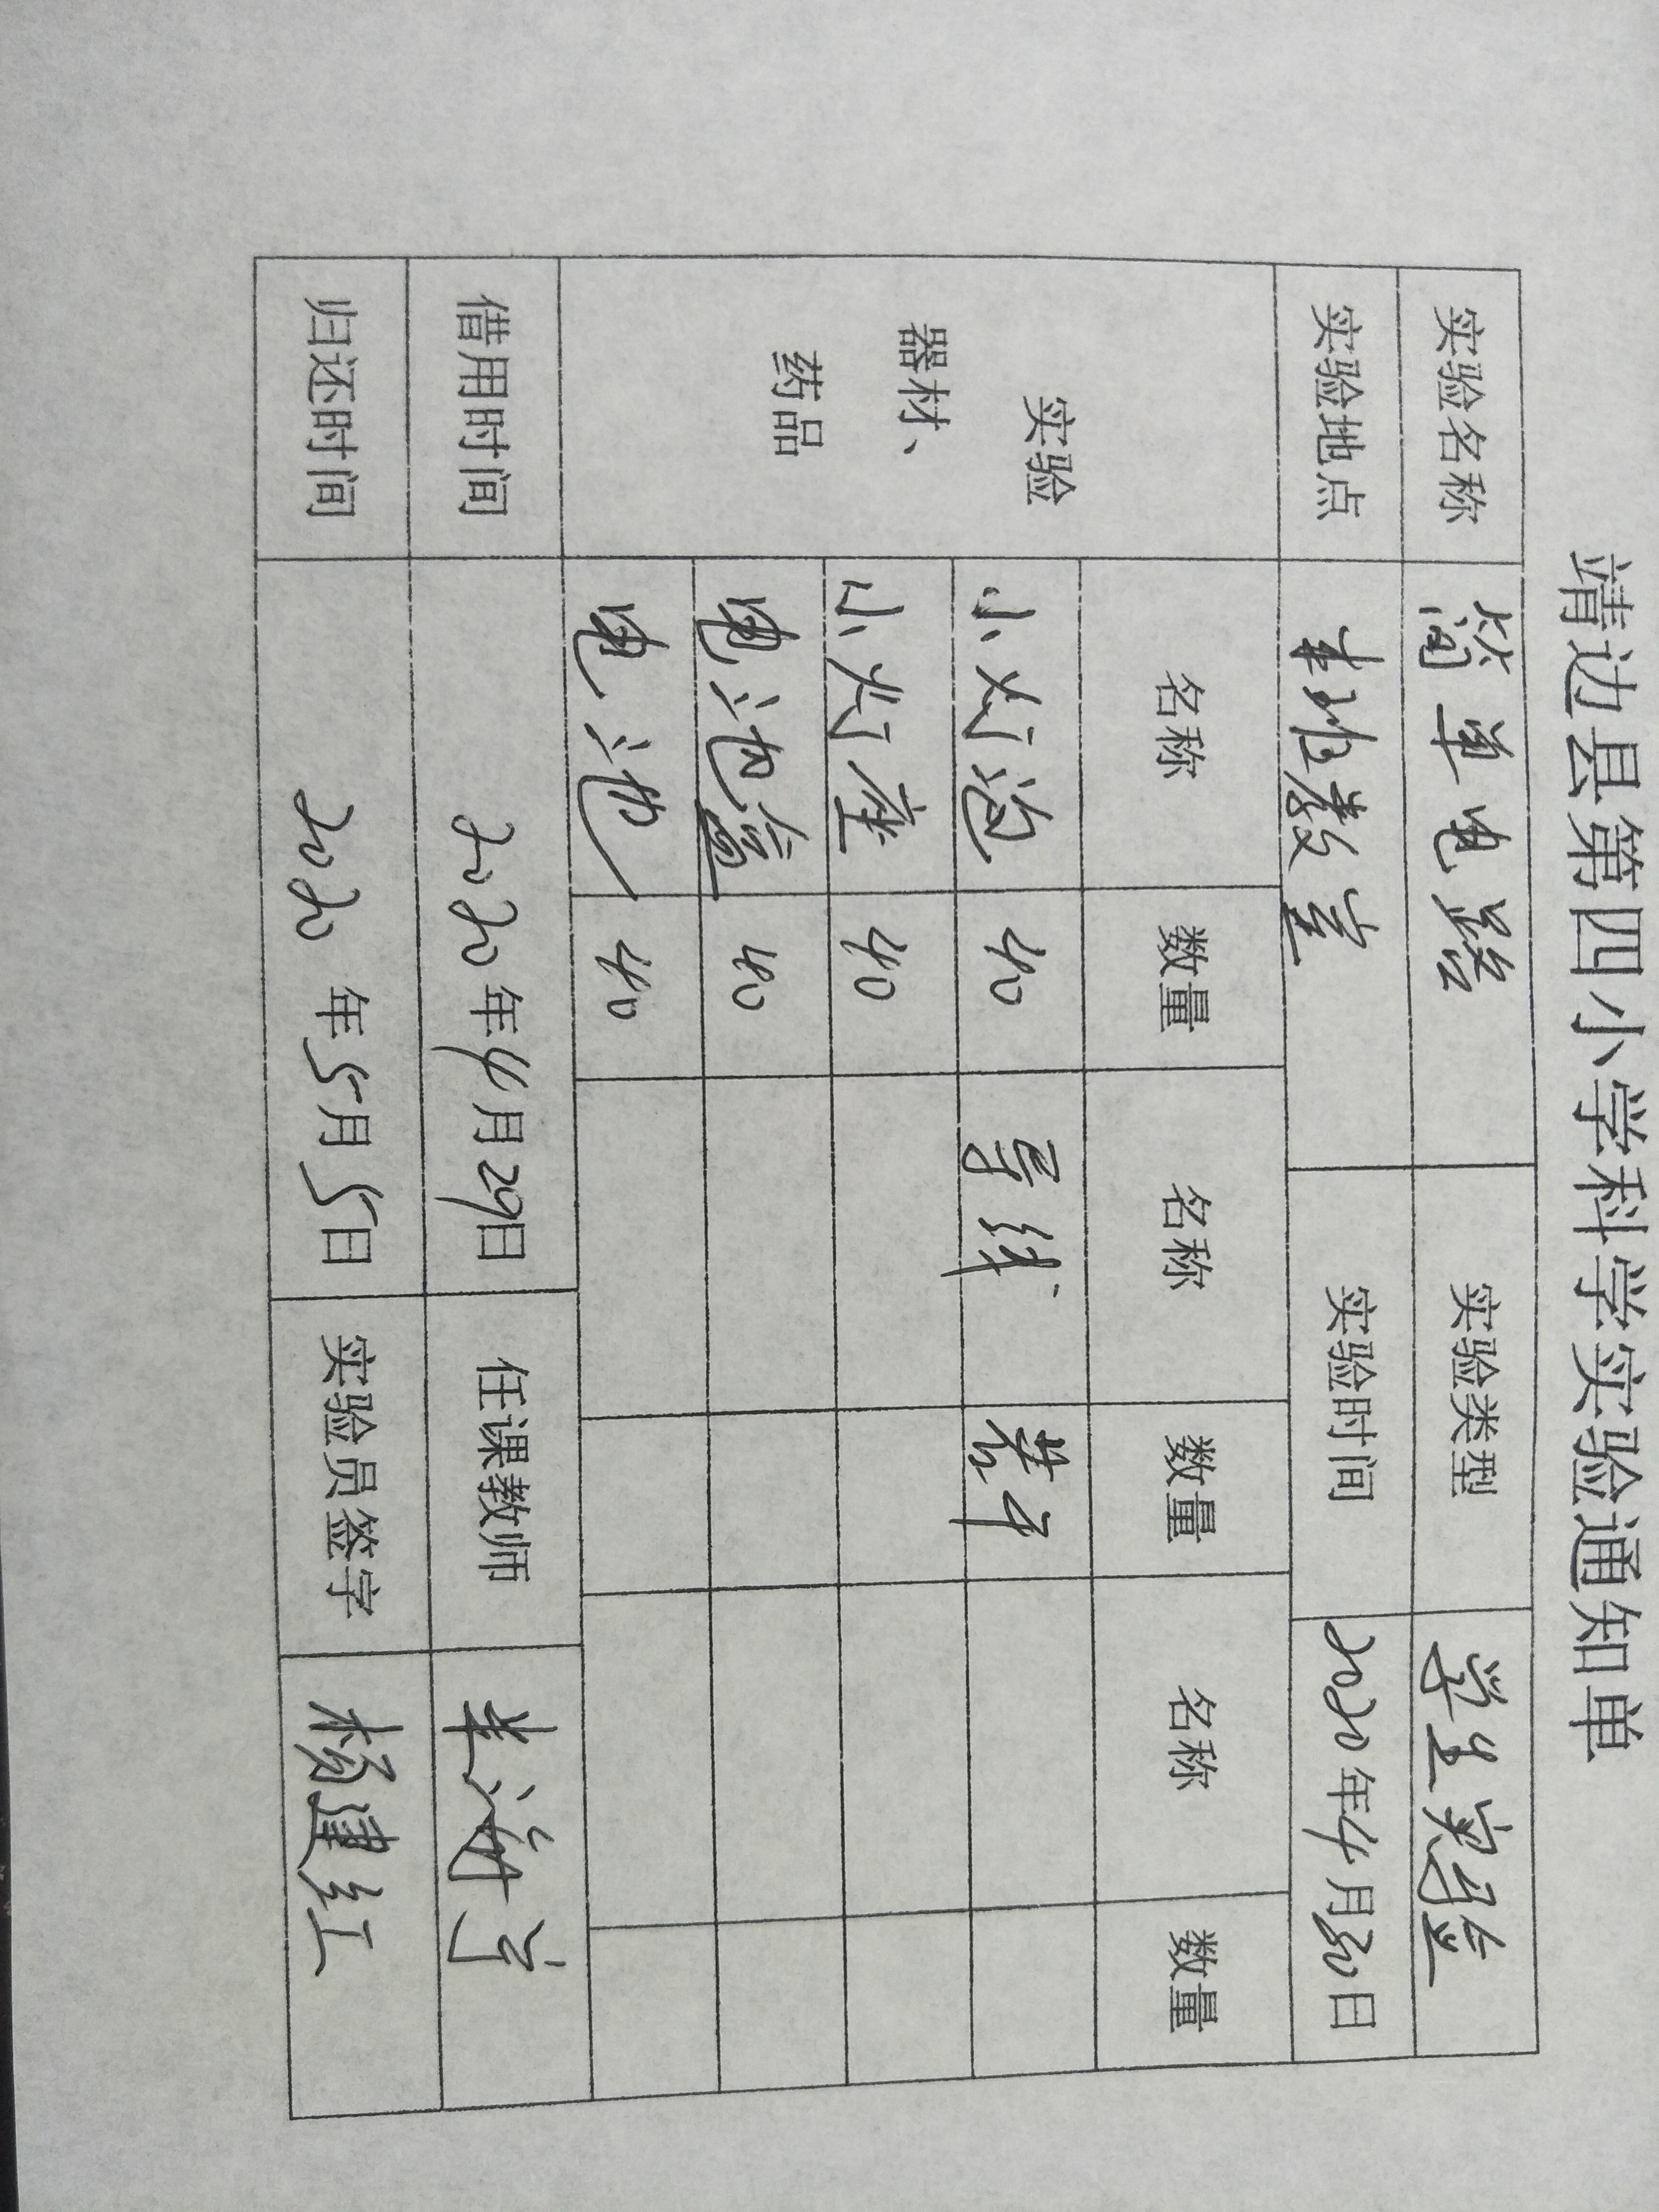 靖边县第四小学科学实验通知单
实验名称 简单电路 实验类型 学生实验
实验地点 本班教室 实验时间 2020年4月30日
实验器材、药品 名称 数量 名称 数量 名称 数量
小灯泡 40 导线 若干
小灯座 40
电池盒 40
电池 40
借用时间 2020年4月29日 任课教师
归还时间 2020年5月5日 实验员签字 杨建红